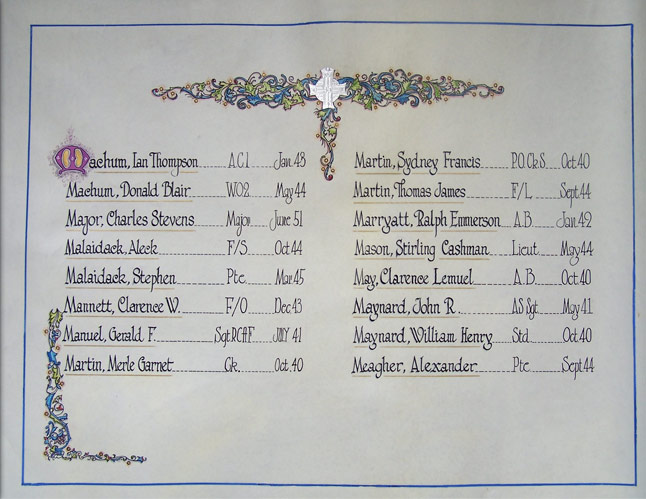 Machum, Ian Thompson A.C.1. Jan. 43
Machum, Donald Blair WO2. May 44
Major, Charles Stevens Major June 51
Malaidack, Aleck F/S. Oct 44
Malaidack, Stephen Pte. Mar. 45
Mannett, Clarence W. F/O. Dec 43
Manuel, Gerald F. Sgt RCAF. JULY 41
Martin, Merle Garnet Ck. Oct. 40
Martin, Sydney Francis P.O. Ck S. Oct 40
Martin, Thomas James F/L. Sept 44
Marryatt, Ralph Emmerson A.B. Jan. 42
Mason, Stirling Cashman Lieut. May 44
May, Clarence Lemuel A.B. Oct. 40
Maynard, John R. AS Sgt. May 41
Maynard, William Henry Std. Oct. 40
Meagher, Alexander Pte. Sept 44